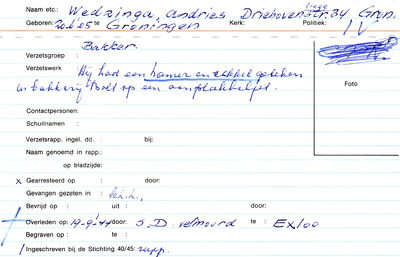 Naam etc.: Wedzinga, Andries Driehovenstr. 34 Gron.
Geboren: 20-2-'05 te Groningen Kerk: Politiek:
Bakker.
Verzetsgroep :
Verzetswerk : Hij had een hamer en sikkel getekend
in bakkerij Voet op een aanplakbiljet.
Foto
Contactpersonen:
Schuilnamen :
Verzetsrapp. ingel. dd. : bij:
Naam genoemd in rapp.:
op bladzijde:
x Gearresteerd op : door:
Gevangen gezeten in : Sch.h.,
Bevrijd op : uit : door:
Overleden op: 19-9-'44 door: S.D. vermoord te : Exloo
Begraven op : te :
Ingeschreven bij de Stichting 40/45: rapp.